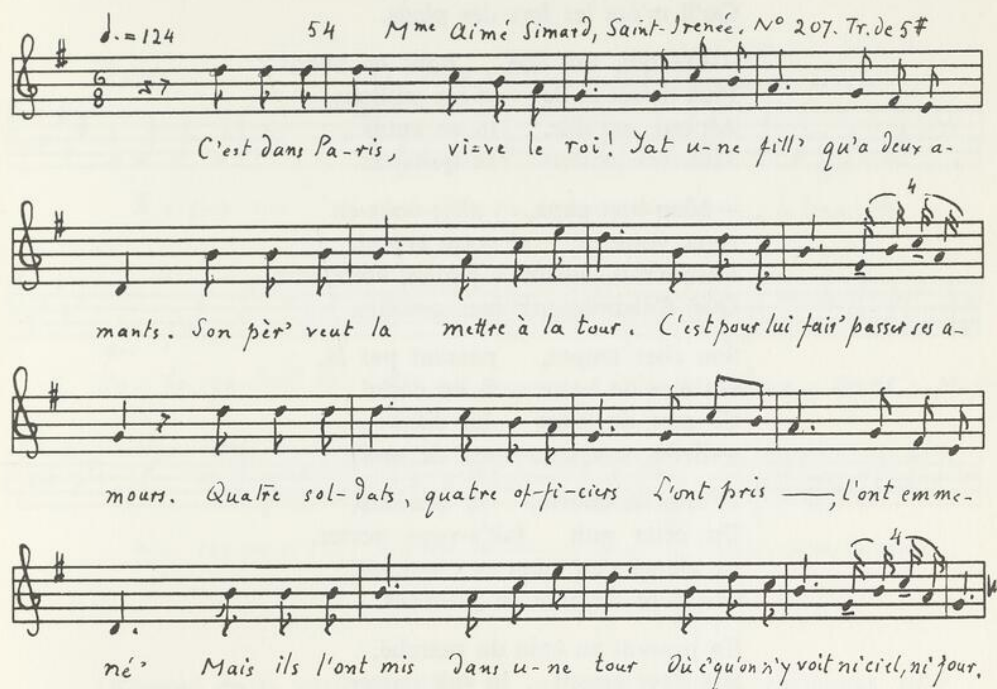 ♩. = 124 54 Mme Aimé Simard, Saint-Irenée. No 207. Tr. de 5#
6 8
C'est dans Pa-ris, vi-ve le roi! Yat u-ne fill' qu'a deux a-
4
mants. Son pèr' veut la mettre à la tour. C'est pour lui fair' passer ses a-
mours. Quatre sol-dats, quatre of-fi-ciers L'ont pris —, l'ont emme-
4
né' Mais ils l'ont mis dans u-ne tour Où c'qu'on n'y voit ni ciel, ni jour.